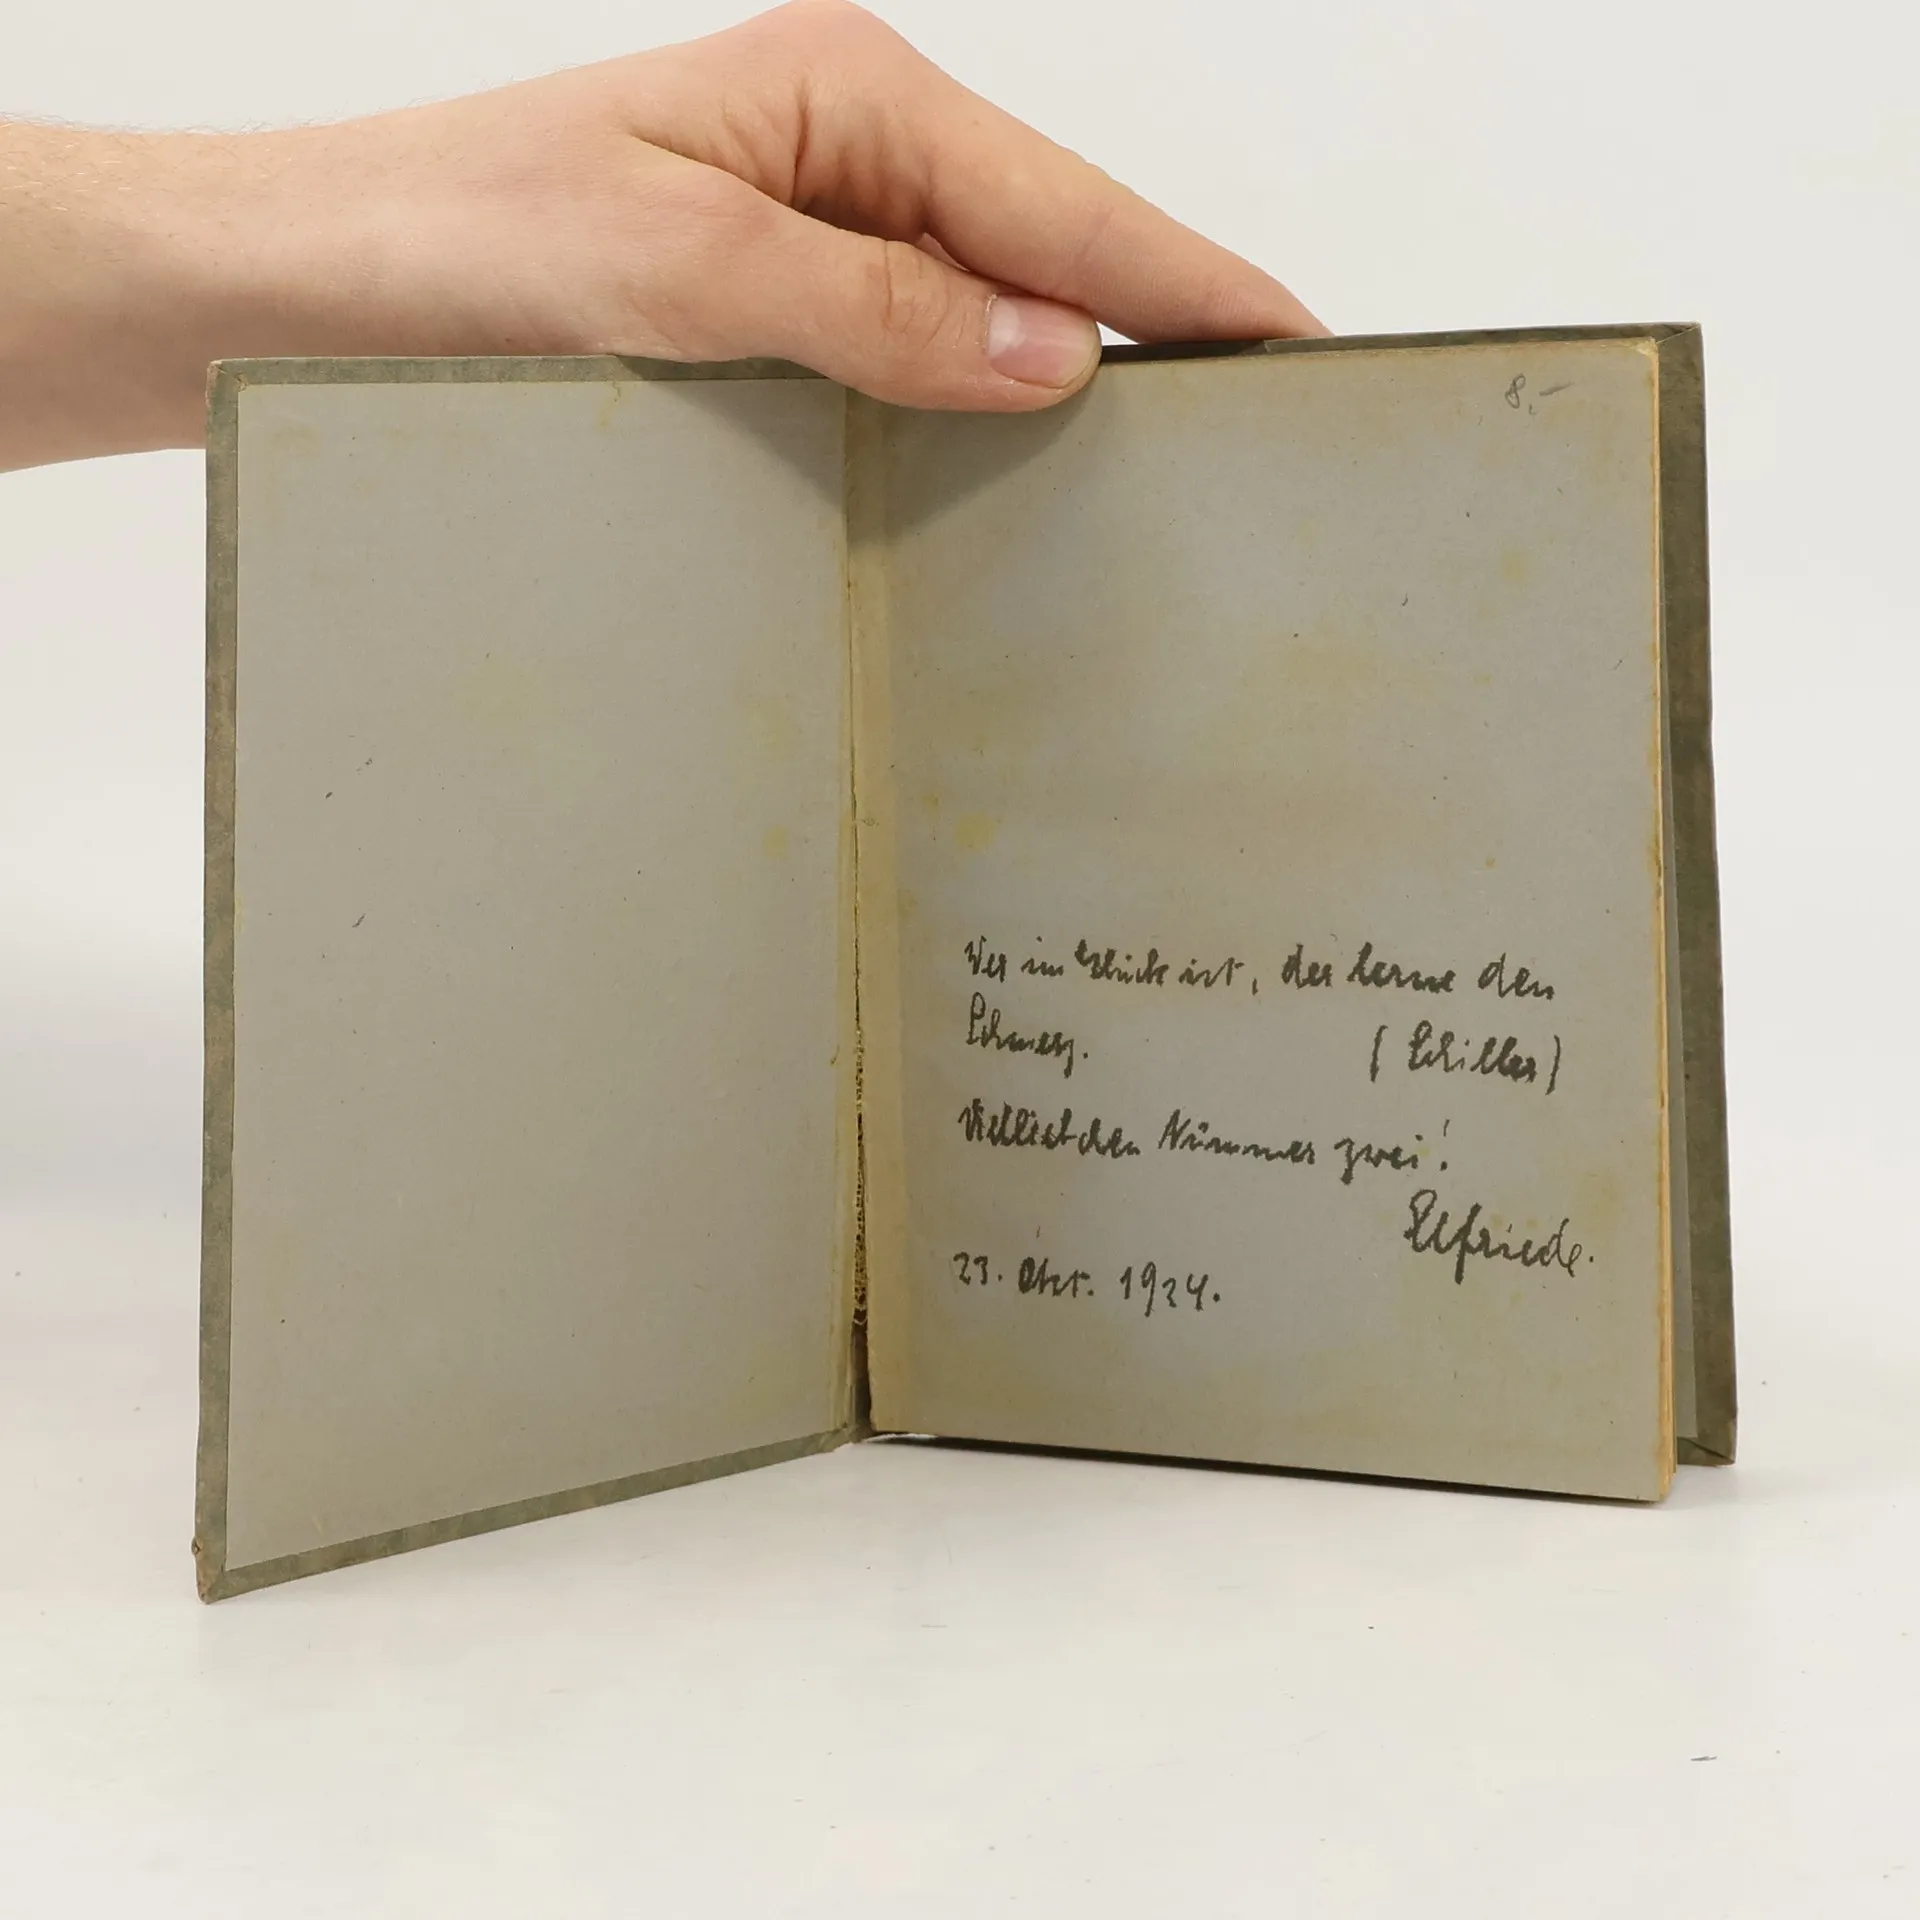 8.-
Wer im Glück ist, der lerne den
Schmerz. (Schiller)
Vielliebchen Nummer zwei!
Elfriede.
23. Okt. 1924.